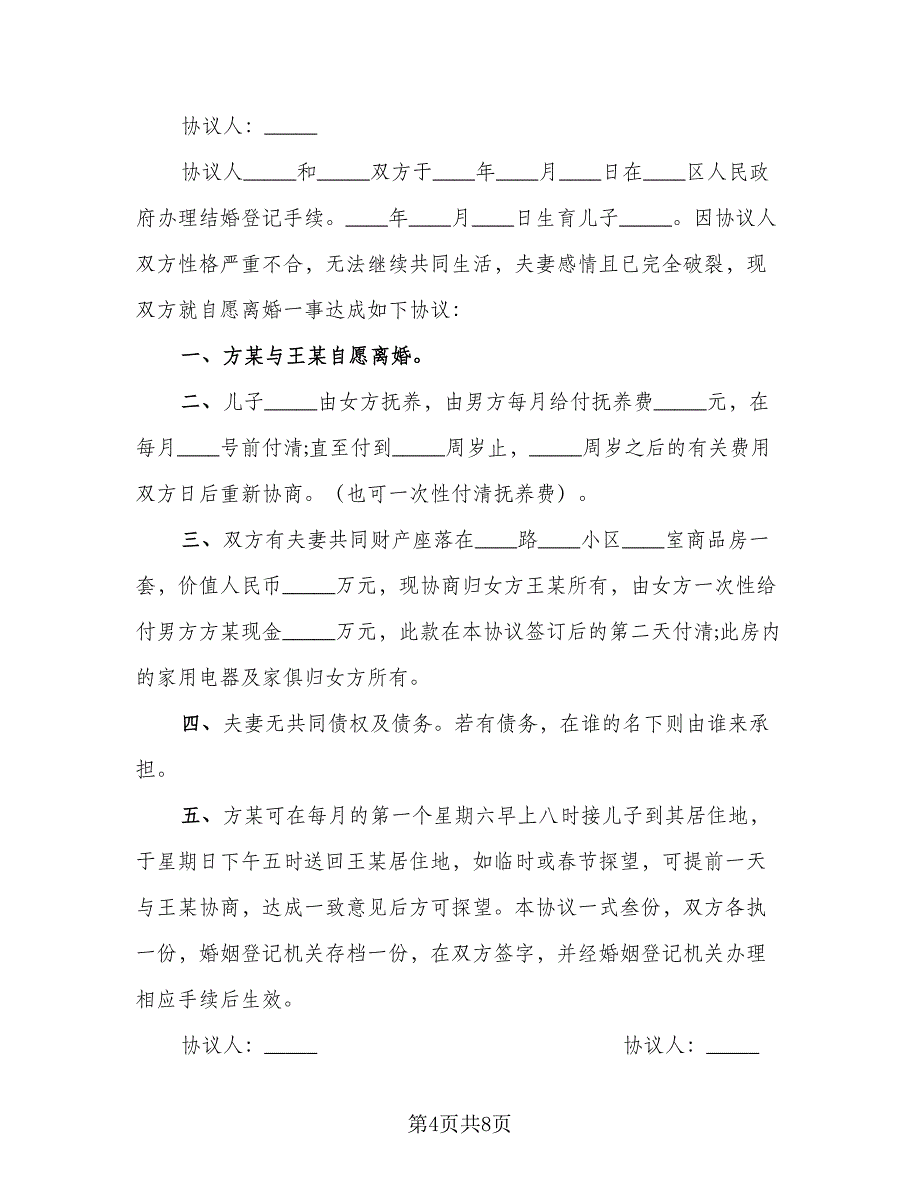 协议人：_____
协议人_____和_____双方于____年____月____日在____区人民政
府办理结婚登记手续。____年____月____日生育儿子_____。因协议人
双方性格严重不合，无法继续共同生活，夫妻感情且已完全破裂，现
双方就自愿离婚一事达成如下协议：
一、方某与王某自愿离婚。
二、儿子_____由女方抚养，由男方每月给付抚养费_____元，在
每月____号前付清;直至付到_____周岁止，_____周岁之后的有关费用
双方日后重新协商。（也可一次性付清抚养费）。
三、双方有夫妻共同财产座落在____路____小区____室商品房一
套，价值人民币_____万元，现协商归女方王某所有，由女方一次性给
付男方方某现金_____万元，此款在本协议签订后的第二天付清;此房内
的家用电器及家俱归女方所有。
四、夫妻无共同债权及债务。若有债务，在谁的名下则由谁来承
担。
五、方某可在每月的第一个星期六早上八时接儿子到其居住地，
于星期日下午五时送回王某居住地，如临时或春节探望，可提前一天
与王某协商，达成一致意见后方可探望。本协议一式叁份，双方各执
一份，婚姻登记机关存档一份，在双方签字，并经婚姻登记机关办理
相应手续后生效。
协议人：_____ 协议人：_____
第4页共8页